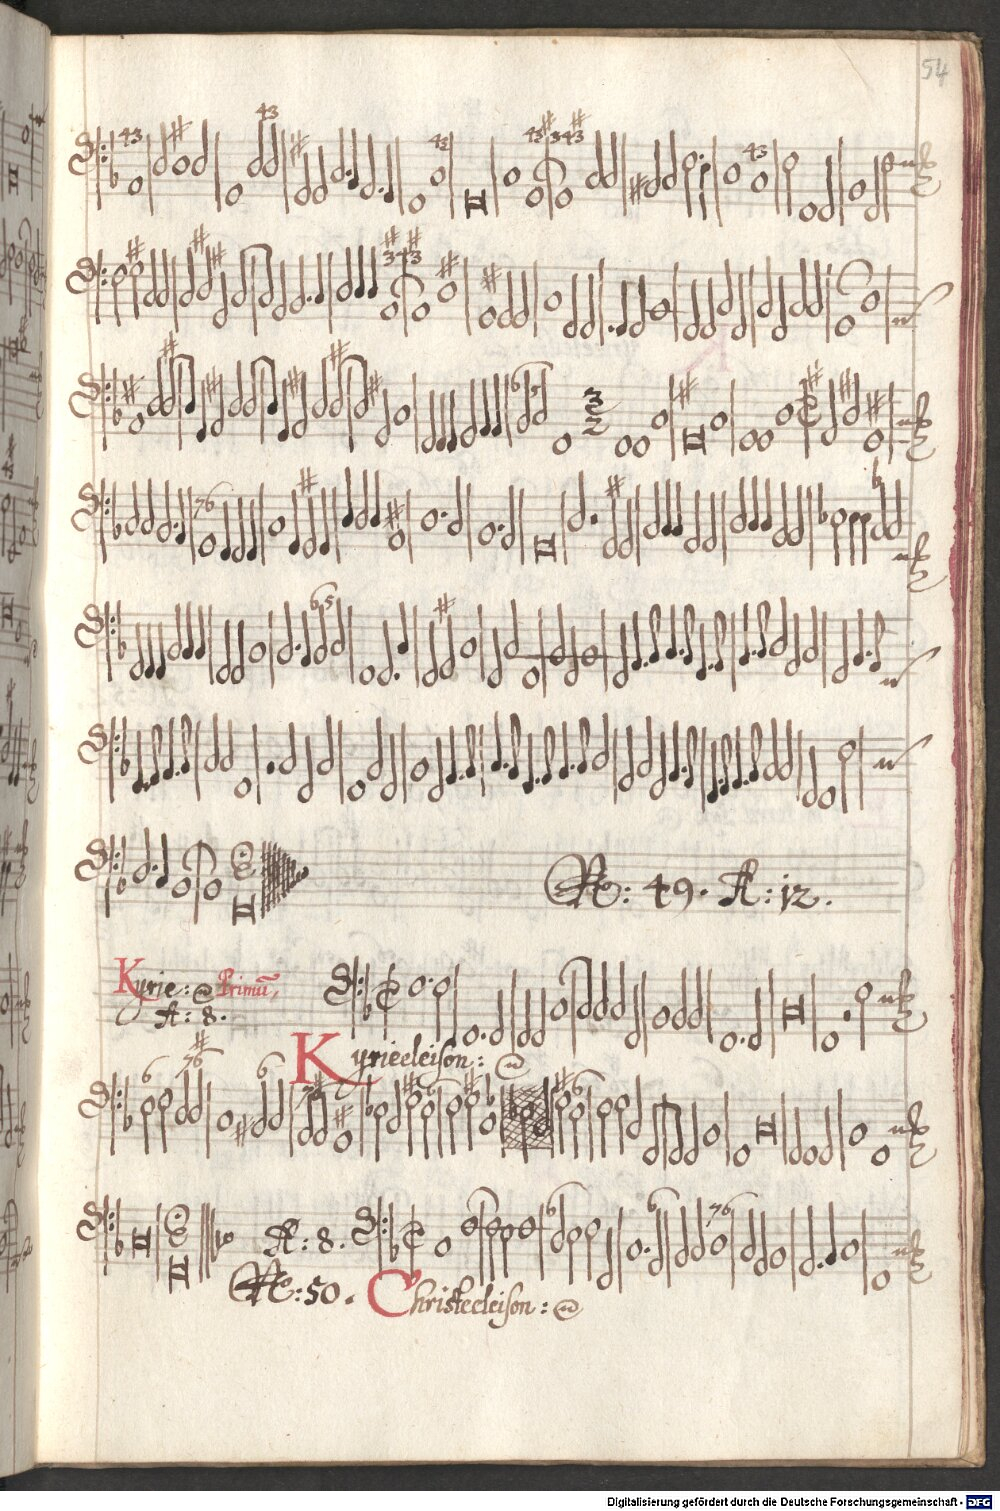 54
No: 49. A: 12.
Kyrie: Primũ,
A: 8.
Kyrieeleison:
A: 8.
No: 50. Christeeleison:
Digitalisierung gefördert durch die Deutsche Forschungsgemeinschaft - DFG